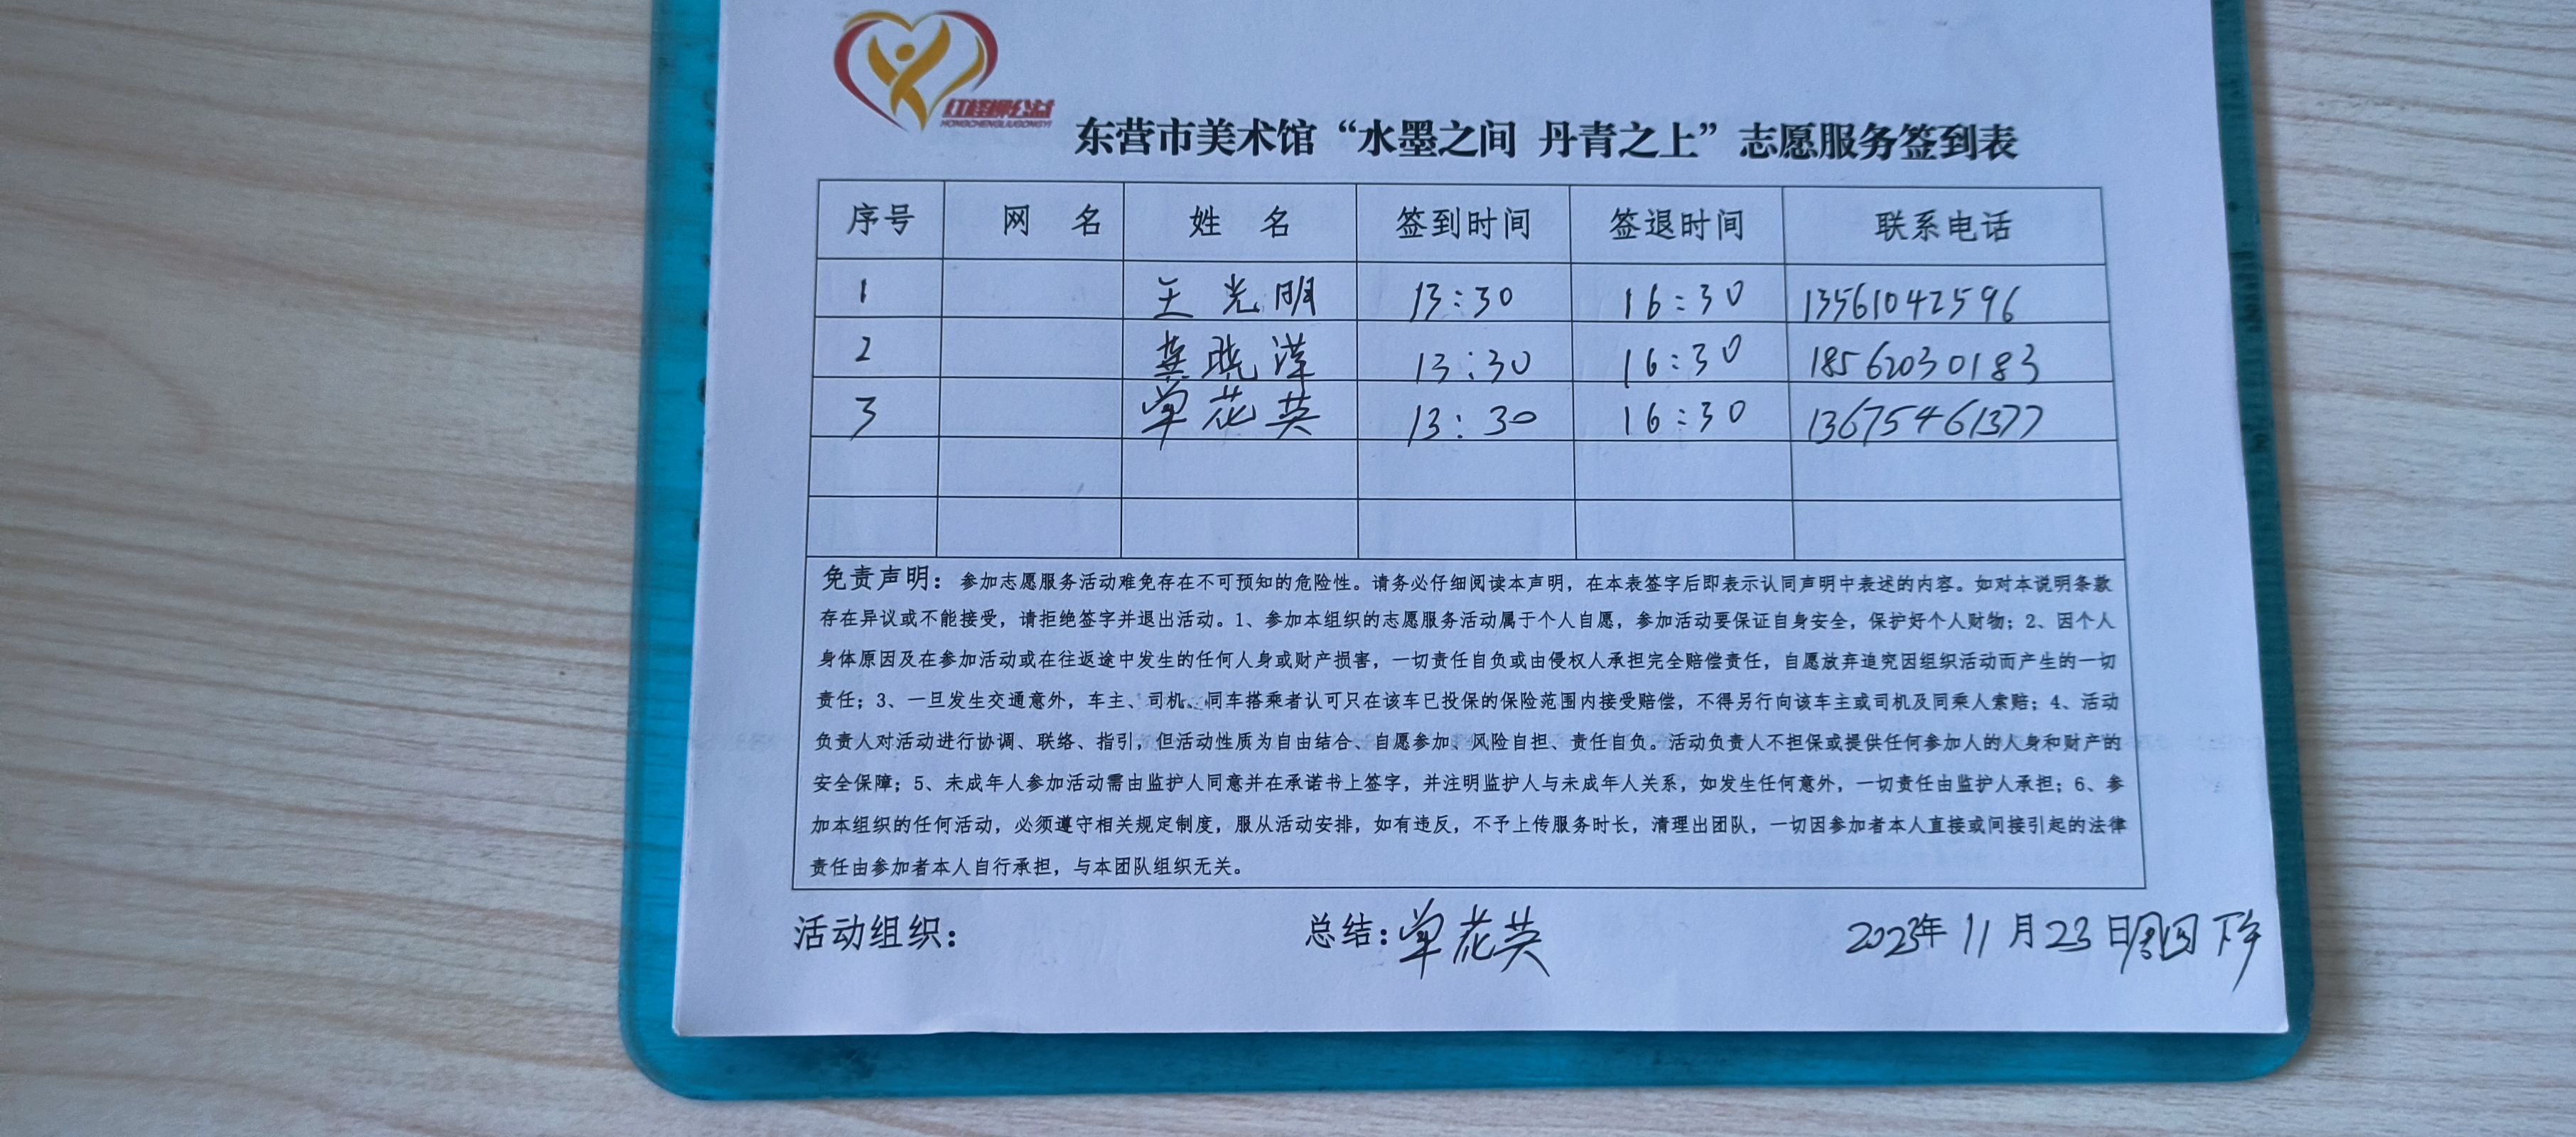 红橙柳公益
HONGCHENGLIUGONGYI
东营市美术馆“水墨之间 丹青之上”志愿服务签到表
序号 网 名 姓 名 签到时间 签退时间 联系电话
1 王光明 13:30 16:30 13561042596
2 龚晓萍 13:30 16:30 18562030183
3 单花英 13:30 16:30 13675461377
免责声明：参加志愿服务活动难免存在不可预知的危险性。请务必仔细阅读本声明，在本表签字后即表示认同声明中表述的内容。如对本说明条款
存在异议或不能接受，请拒绝签字并退出活动。1、参加本组织的志愿服务活动属于个人自愿，参加活动要保证自身安全，保护好个人财物；2、因个人
身体原因及在参加活动或在往返途中发生的任何人身或财产损害，一切责任自负或由侵权人承担完全赔偿责任，自愿放弃追究因组织活动而产生的一切
责任；3、一旦发生交通意外，车主、司机、同车搭乘者认可只在该车已投保的保险范围内接受赔偿，不得另行向该车主或司机及同乘人索赔；4、活动
负责人对活动进行协调、联络、指引，但活动性质为自由结合、自愿参加、风险自担、责任自负。活动负责人不担保或提供任何参加人的人身和财产的
安全保障；5、未成年人参加活动需由监护人同意并在承诺书上签字，并注明监护人与未成年人关系，如发生任何意外，一切责任由监护人承担；6、参
加本组织的任何活动，必须遵守相关规定制度，服从活动安排，如有违反，不予上传服务时长，清理出团队，一切因参加者本人直接或间接引起的法律
责任由参加者本人自行承担，与本团队组织无关。
活动组织： 总结：单花英 2023年11月23日周四下午